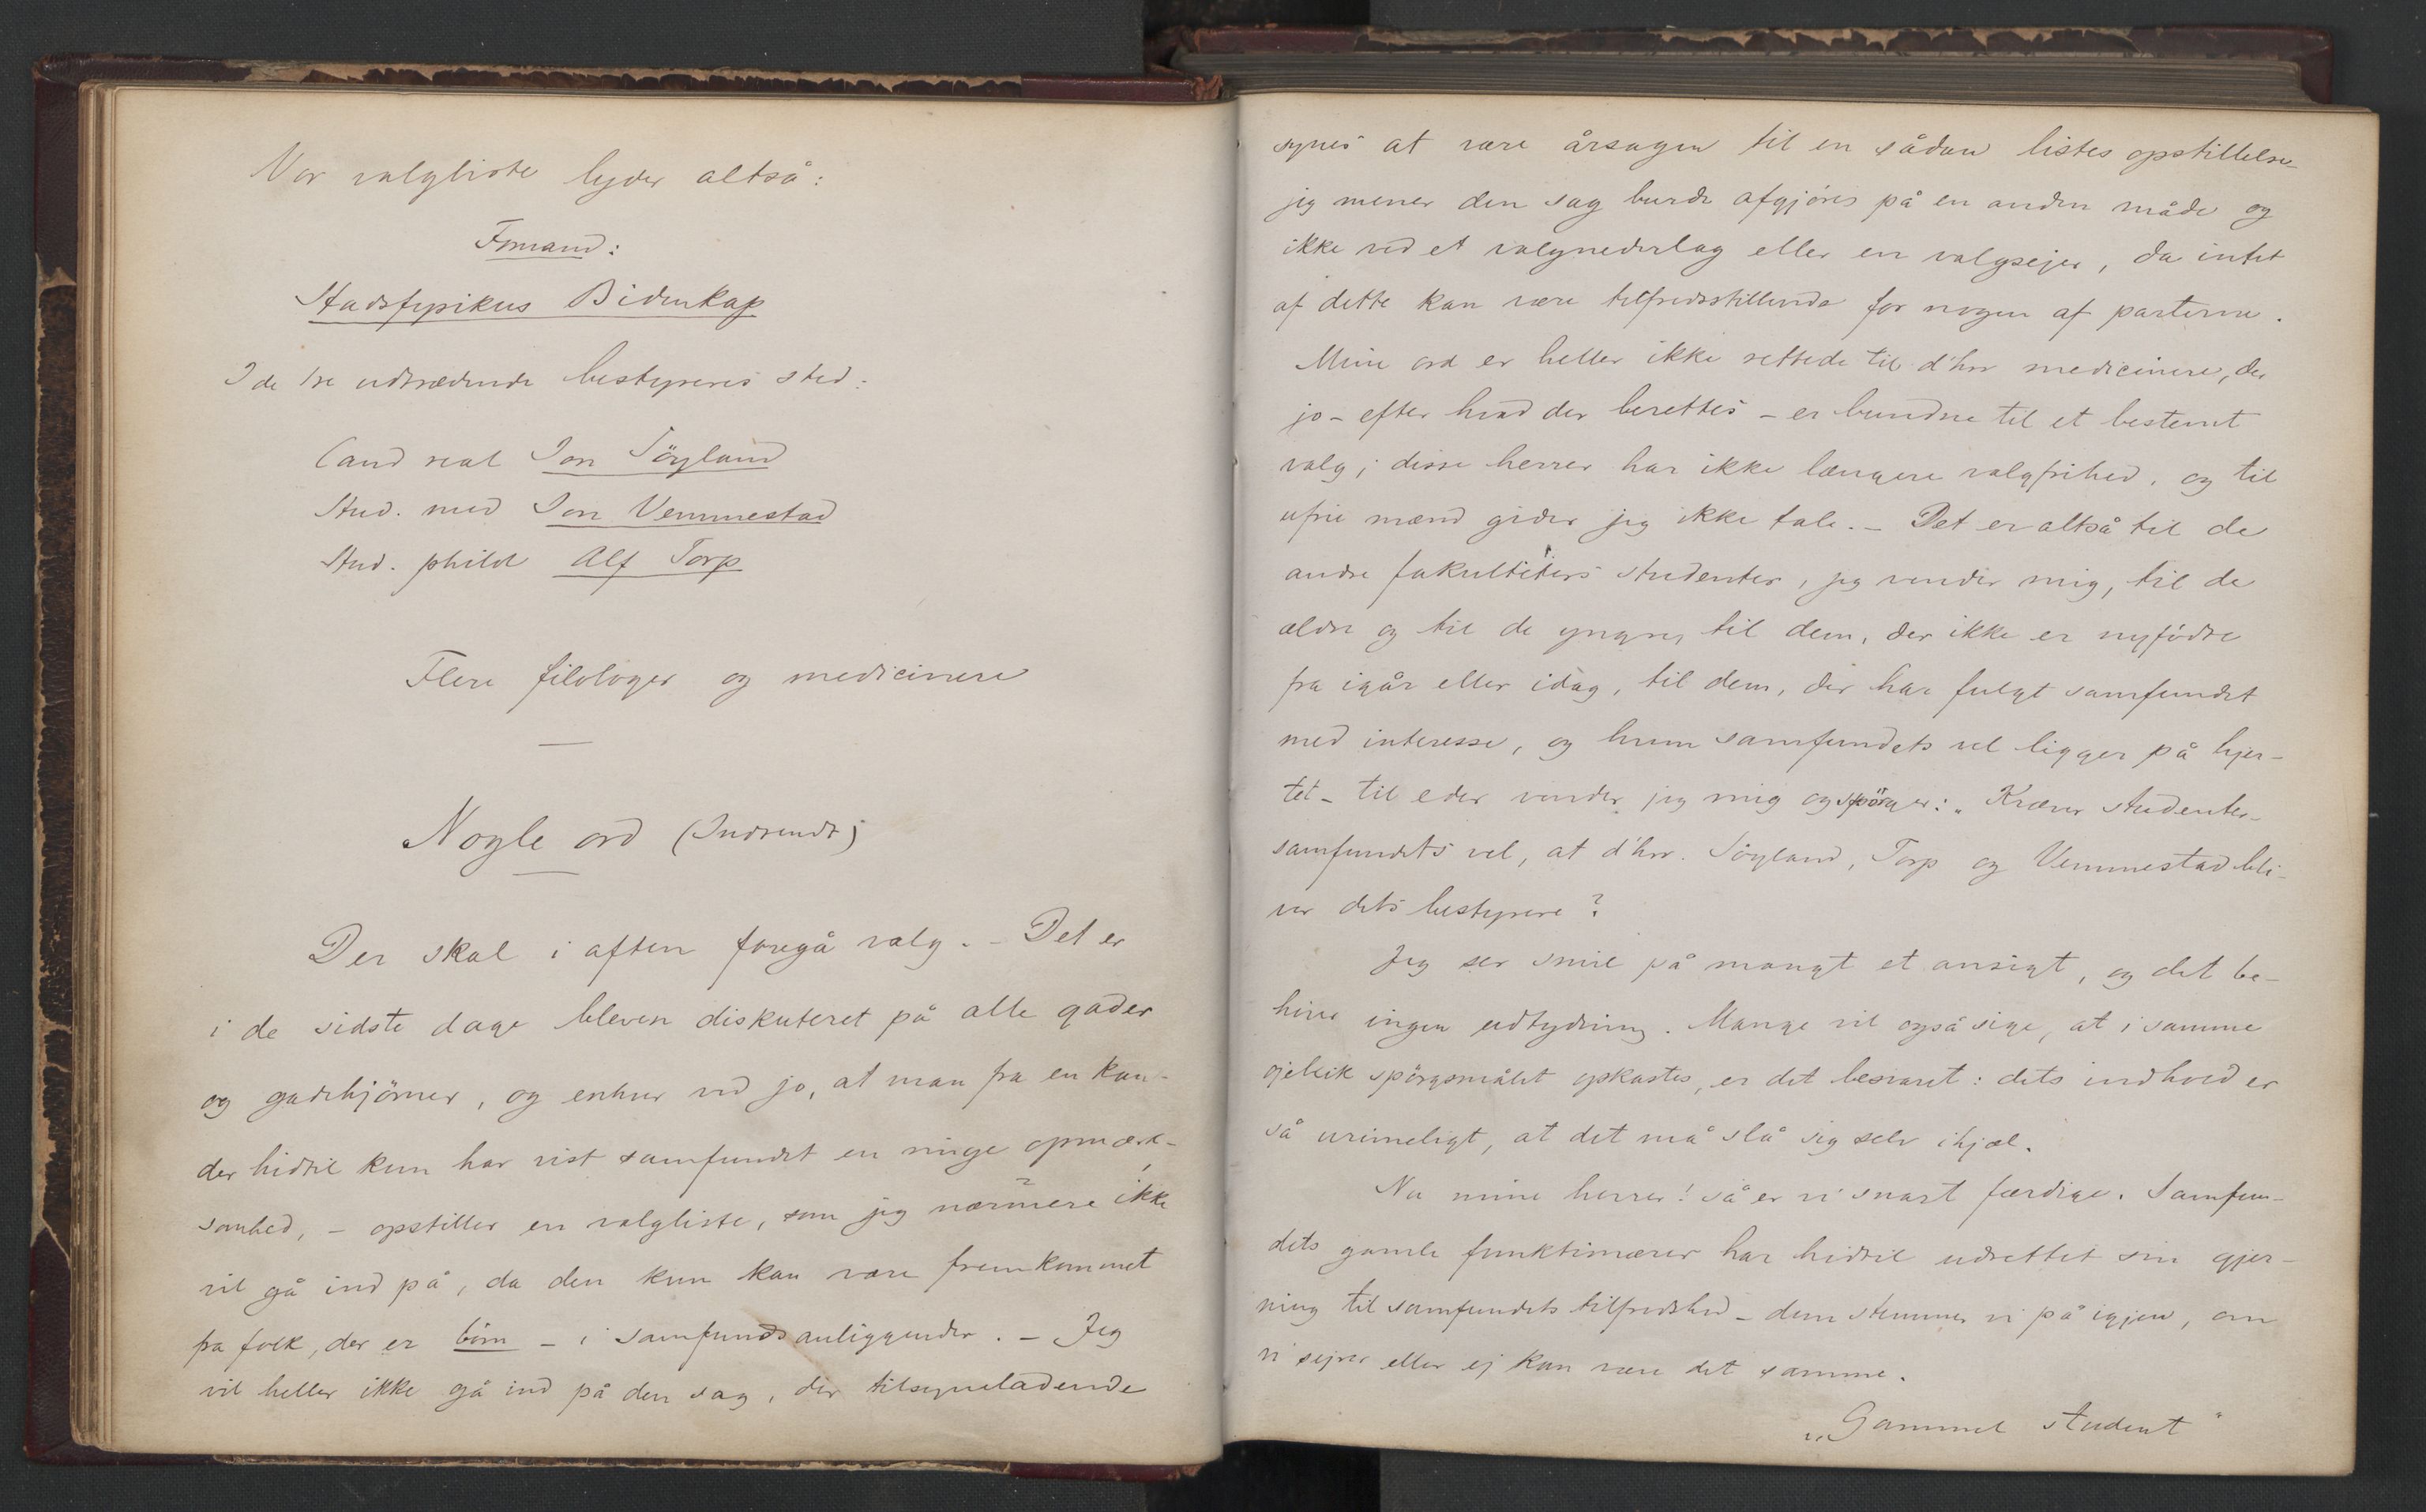 Vor valgliste lyder altså:
Formand:
Stadsfysikus Bidenkap
I de tre udtrædende bestyreres sted:
Cand real Jon Söyland
Stud. med Jon Vemmestad
Stud. philol Alf Torp
Flere filologer og medicinere
Nogle ord (Indsendt)
Der skal i aften foregå valg. – Det er
i de sidste dage bleven diskuteret på alle gader
og gadehjörner, og enhver ved jo, at man fra en kan-
der hidtil kun har vist samfundet en ringe opmærk-
somhed, – opstiller en valgliste, som jeg nærmere ikke
vil gå ind på, da den kun kan være fremkommet
fra folk, der er börn – i samfundsanliggender. – Jeg
vil heller ikke gå ind på den sag, der tilsyneladende
synes at være årsagen til en sådan listes opstillelse
jeg mener den sag burde afgjöres på en anden måde og
ikke ved et valgnederlag eller en valgsejer, da intet
af dette kan være tilfredsstillende for nogen af parterne.
Mine ord er heller ikke rettede til d'hrr medicinere, der
jo – efter hvad der berettes – er bundne til et bestemt
valg; disse herrer har ikke længere valgfrihed, og til
ufrie mænd gider jeg ikke tale. – Det er altså til de
andre fakulteters studenter, jeg vender mig, til de
ældre og til de yngre, til dem, der ikke er nyfödte
fra igår eller idag, til dem, der har fulgt samfundet
med interesse, og hvem samfundets vel ligger på hjer-
tet – til eder vender jeg mig og spörger: „Kræver studenter-
samfundets vel, at d'hrr. Söyland, Torp og Vemmestad bli-
ver dets bestyrere?
Jeg ser smil på mangt et ansigt, og det be-
höver ingen udtydning. Mange vil også sige, at i samme
öjeblik spörgsmålet opkastes, er det besvaret: dets indhold er
så urimeligt, at det må slå sig selv ihjæl.
Nu mine herrer! så er vi snart færdige. Samfun-
dets gamle funktionærer har hidtil udrettet sin gjer-
ning til samfundets tilfredshed – dem stemmer vi på igjen, om
vi sejrer eller ej kan være det samme.
„Gammel student"